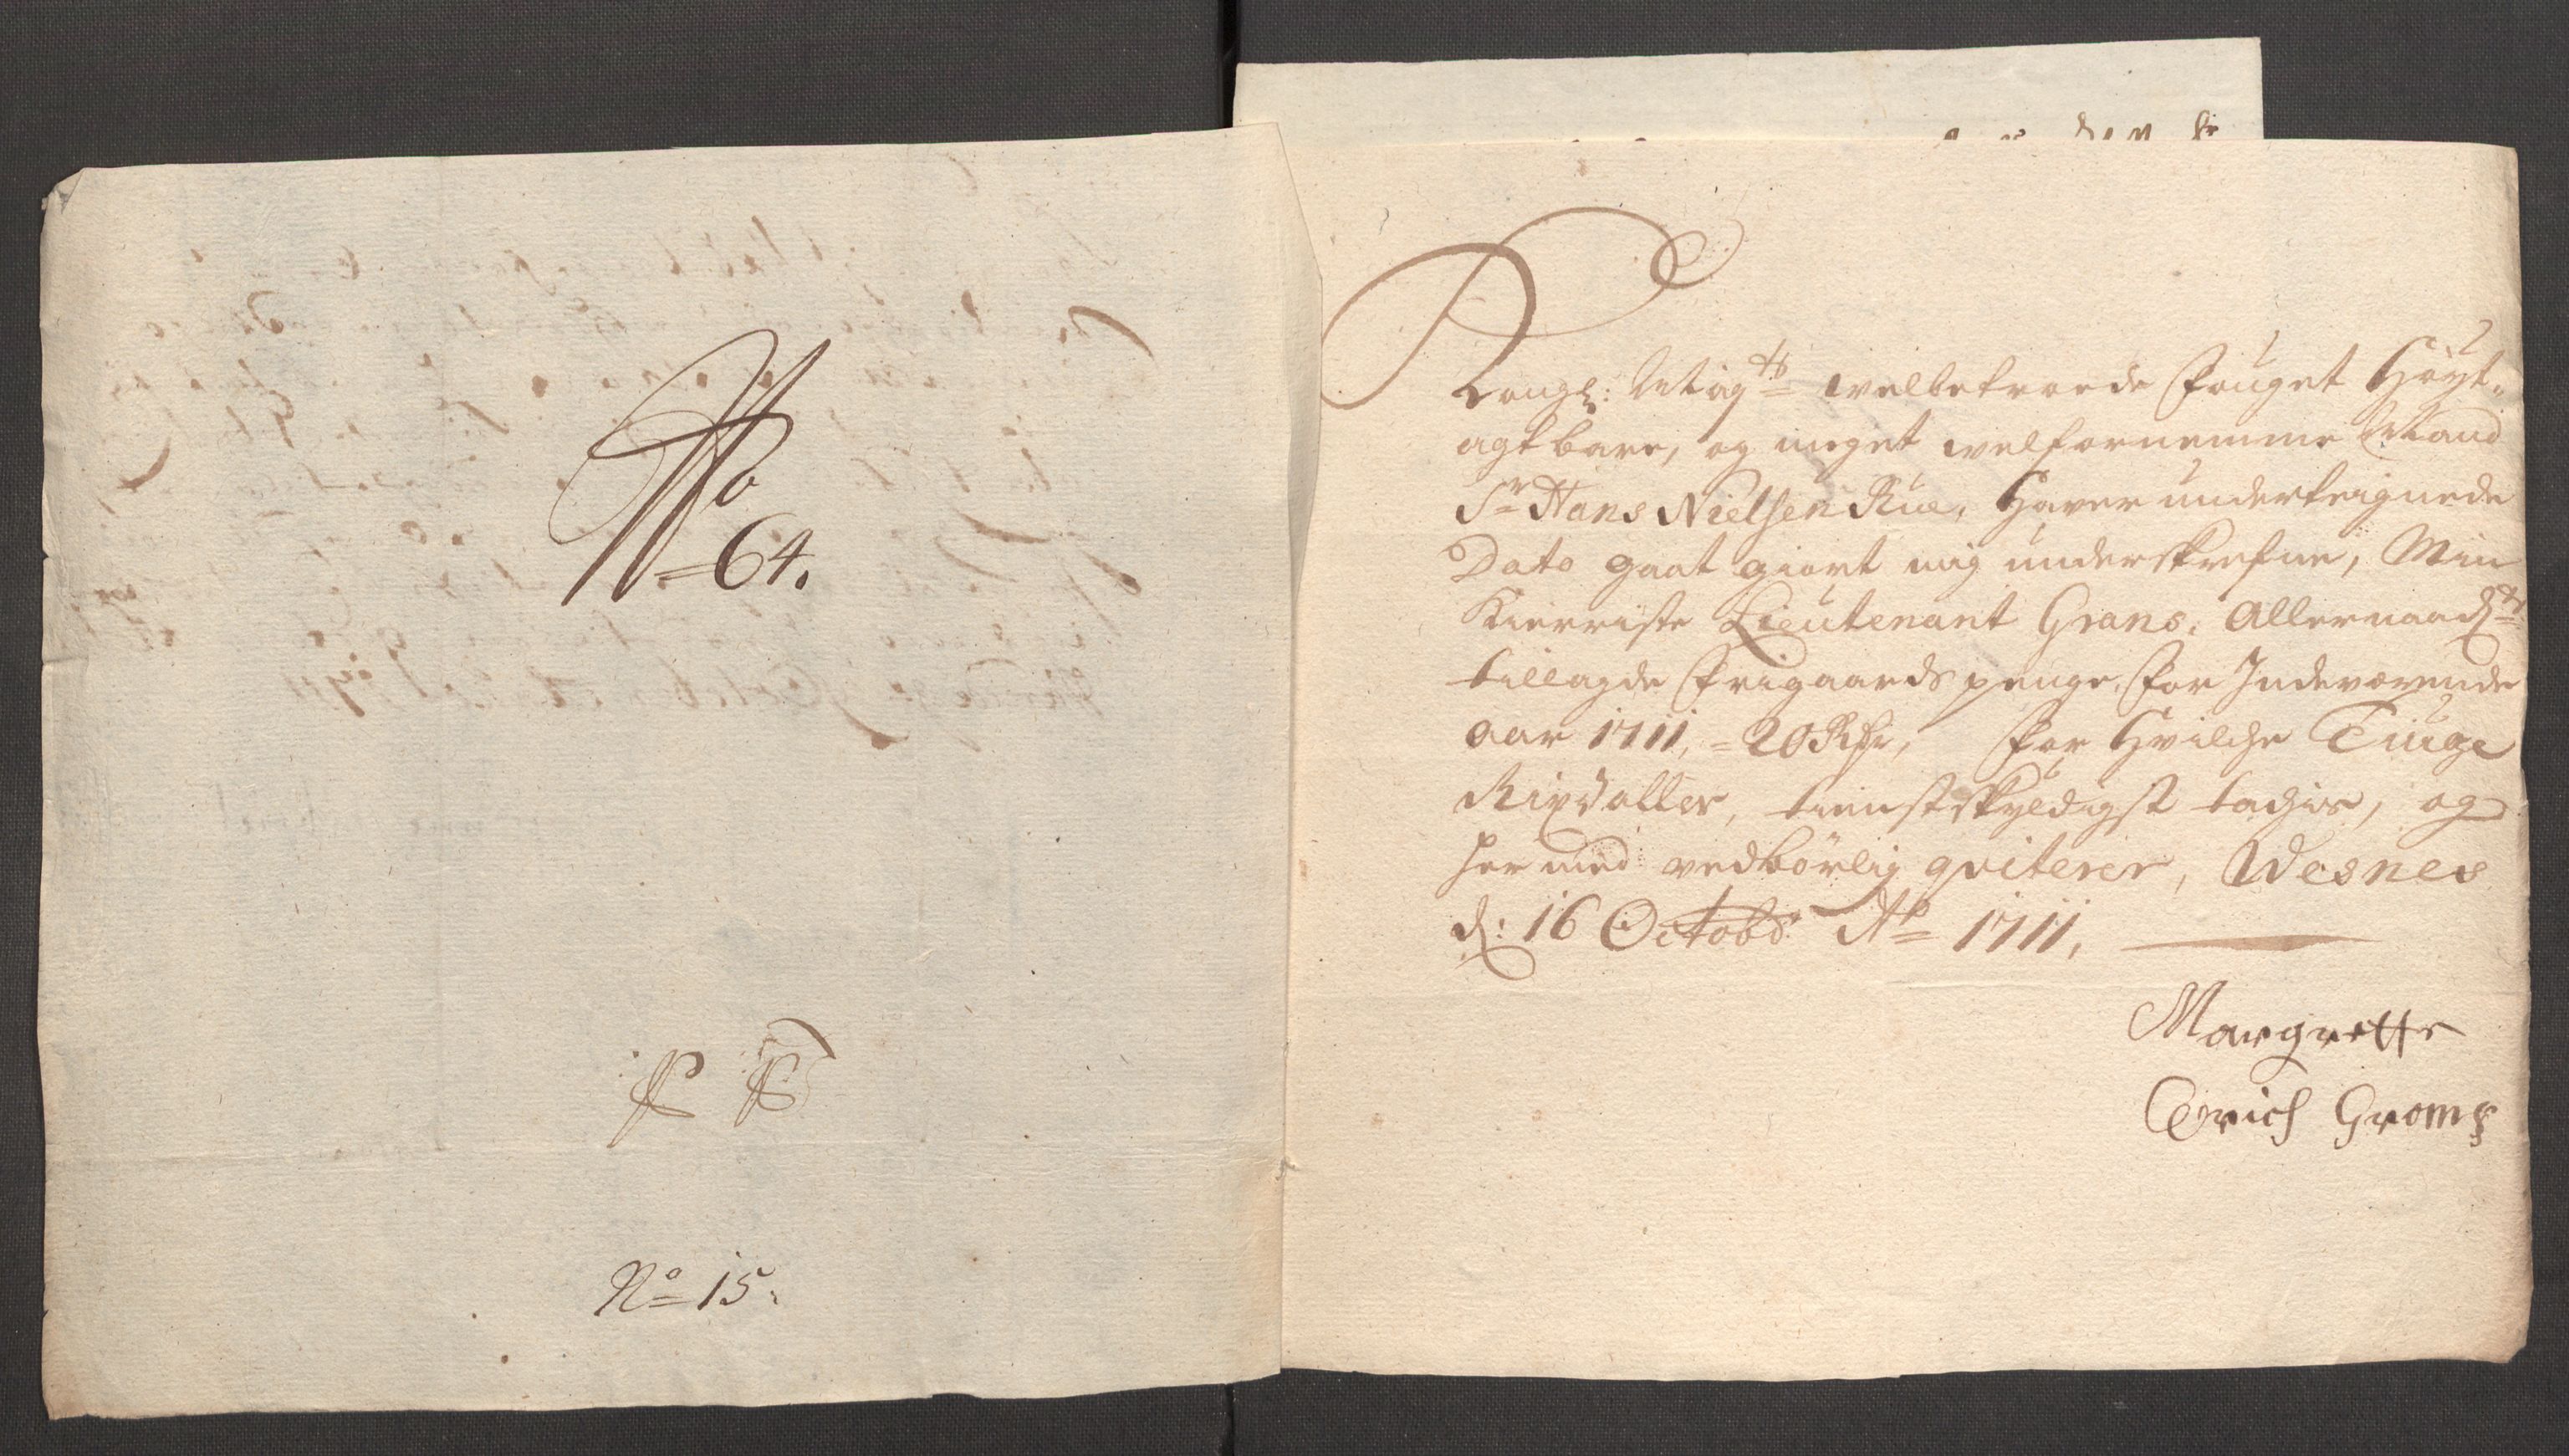 No
64.
No 15.
Kongl: Maÿts welbetroede Fouget Höÿt-
agtbare, og meget welfornemme Mand
Sr Hans Nielsen Rúe, Hawer underteignede
Dato gaat giort mig underskrefne, Min
Kierriste Lieutenant Grans, Allernaadst
tillagde Frigaards penge, for Indeværende
aar 1711, = 20 Rdr, for Hvilche Tiuge
Rixdaller, tienstskÿldigst tachis, og
her med vedbörlig qviterer, Wesnes
d: 16 Octobr Ao 1711,
Margrette
Erich Groms